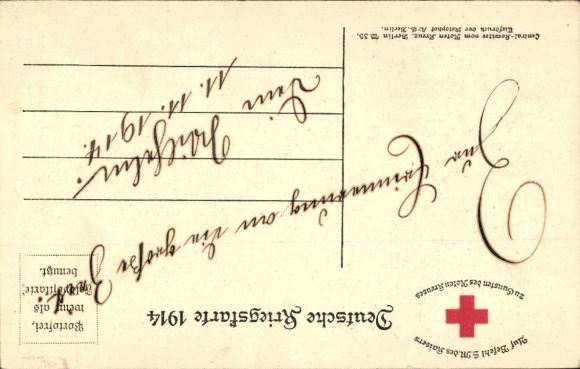 Auf Befehl S.M. des Kaisers
zu Gunsten des Roten Kreuzes
Deutsche Kriegskarte 1914
Portofrei,
wenn als
Feldpostkarte
benutzt.
Zur Erinnerung an die große Zeit.
Dein
Wilhelm.
11. 11. 1914.
Central-Komitee vom Roten Kreuz, Berlin W.35.
Tiefdruck der Rotophot A.-G., Berlin.